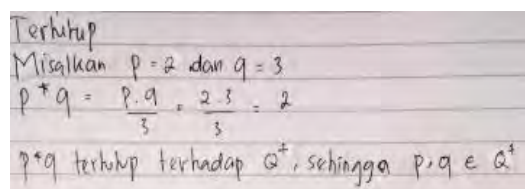 Terhutup
Misalkan p = 2 dan q = 3
p * q = p.q/3 = 2.3/3 = 2
p*q tertutup terhadap Q⁺, sehingga p,q ∈ Q⁺